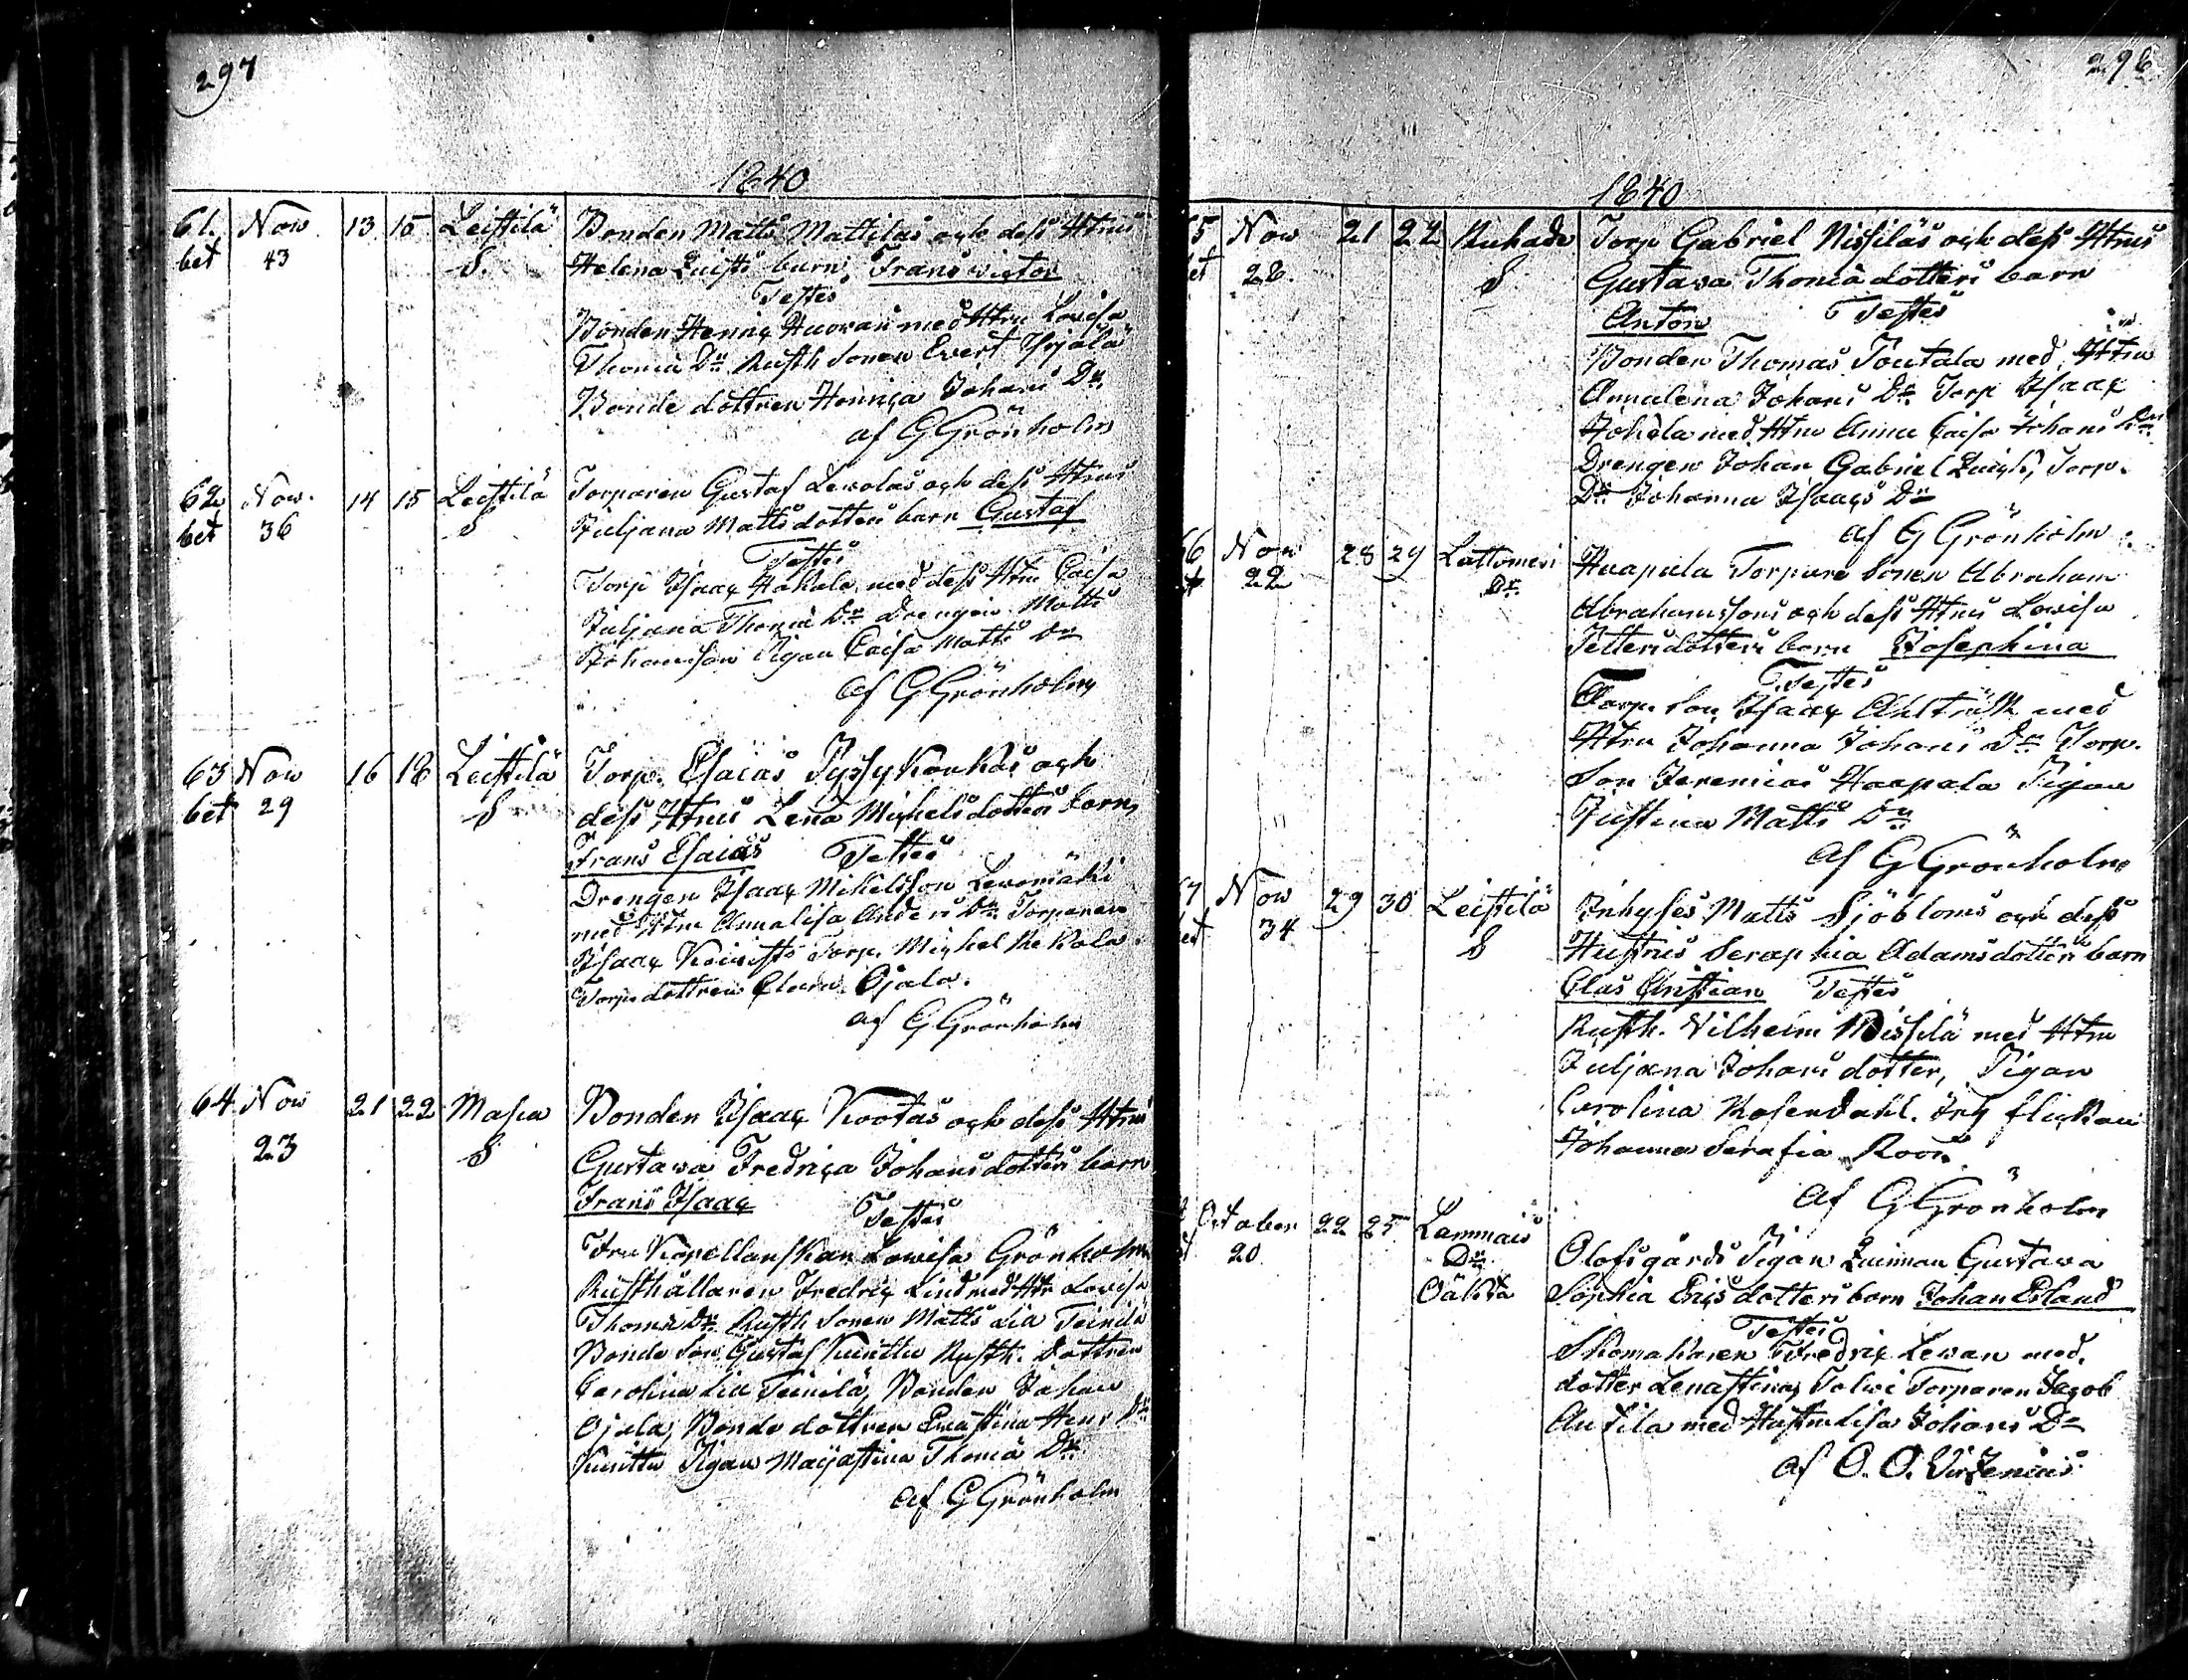 297
1840
61. Nov. 13 15 Leistilä Bonden Matts Mattilas och dess Htrus
bet 43 S. Helena Luists barn, Frans victor
Testes
Bonden Henric Huovari med Htru Lovisa
Thomæ Dr Rusth Sonen Evert Yrjälä
Bonde dottren Henrica Johans Dr
af G Grönholm
62 Nov. 14 15 Leistilä Torparen Gustaf Levolas och dess Htrus
bet 36 S Juljana Mattsdotters barn Gustaf
Testes
Torp Isaac Hakala med dess Htru Caisa
Juljana Thomæ Dr Drengen Matts
Johansson Pigan Caisa Matts Dr
af G Grönholm
63 Nov 16 18 Leistilä Torp. Esaias Pyssykankas och
bet 29 S dess Htrus Lena Michelsdotters barn,
Frans Esaias Testes
Drengen Isaac Mikelsson Levomäki
med Htru Annalisa Anders Dr Torparen
Isaac Torp. Michel Kekola
Torp dottren Ojala.
af G Grönholm
64 Nov 21 22 Masia Bonden Isaac Kootas och dess Htrus
23 S Gustava Fredrica Johansdotters barn
Frans Isaac Testes
Fru Kapellanskan Lovisa Grönholm
Rusthållaren Fredric Lind med Htr Lovisa
Thomæ Dr Rusth Sonen Matts Lill Teinilä
Bonde Son Gustaf Kuuttu Rusth. Dottren
Carolina Lill Teinilä, Bonden Johan
Ojala, Bonde dottren Evastina Henr Dr
Kuuttu Pigan Majastina Thomæ Dr
af G Grönholm
296
1840
5 Nov 21 22 Ruhade Torp Gabriel Nissiläs och dess Htrus
et 28. S Gustava Thomædotters barn
Anton Testes
Bonden Thomas Toutala med Htru
Annalena Johans Dr Torp Isaac
Jokela med Htru Anna Caisa Johans Dr
Drengen Johan Gabriel Torp.
Dr Johanna Isaacs Dr
af G Grönholm.
66 Nov 28 29 Lattomeri Haapala Torpare Sonen Abraham
22 Dr Abrahamssons och dess Htrus Lovisa
Pettersdotters barn Josephina
Testes
Torp. Son Isaac med
Htru Johanna Johans Dr Torp.
Son Jeremias Haapala Pigan
Justina Matts Dr
af G Grönholm
67 Nov 29 30 Leistilä Inhyses Matts Sjöbloms och dess
et 34 S Hustrus Seraphia Adamsdotters barn
Clas Christian Testes
Rusth. Vilhelm Nissilä med Htru
Juljana Johansdotter, Pigan
Carolina Rosendahl. och flickan
Johanna Serafia Roos.
af G Grönholm
October 22 25 Lammais Olofsgårds Pigan Gustava
20 Dr Sophia Ericsdotters barn Johan Erland
Testes
Skomakaren Fredric Levan med
dotter Lenastina, Tolvi Torparen Jacob
Anttila med Hustru Lisa Johans Dr
af O. O. Virzenius